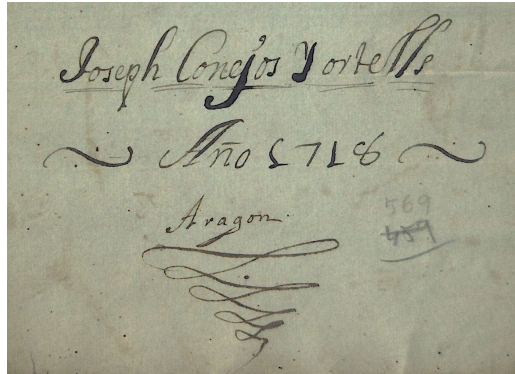 Joseph Conejos Y ortells
Año 1718
Aragon.
569
459